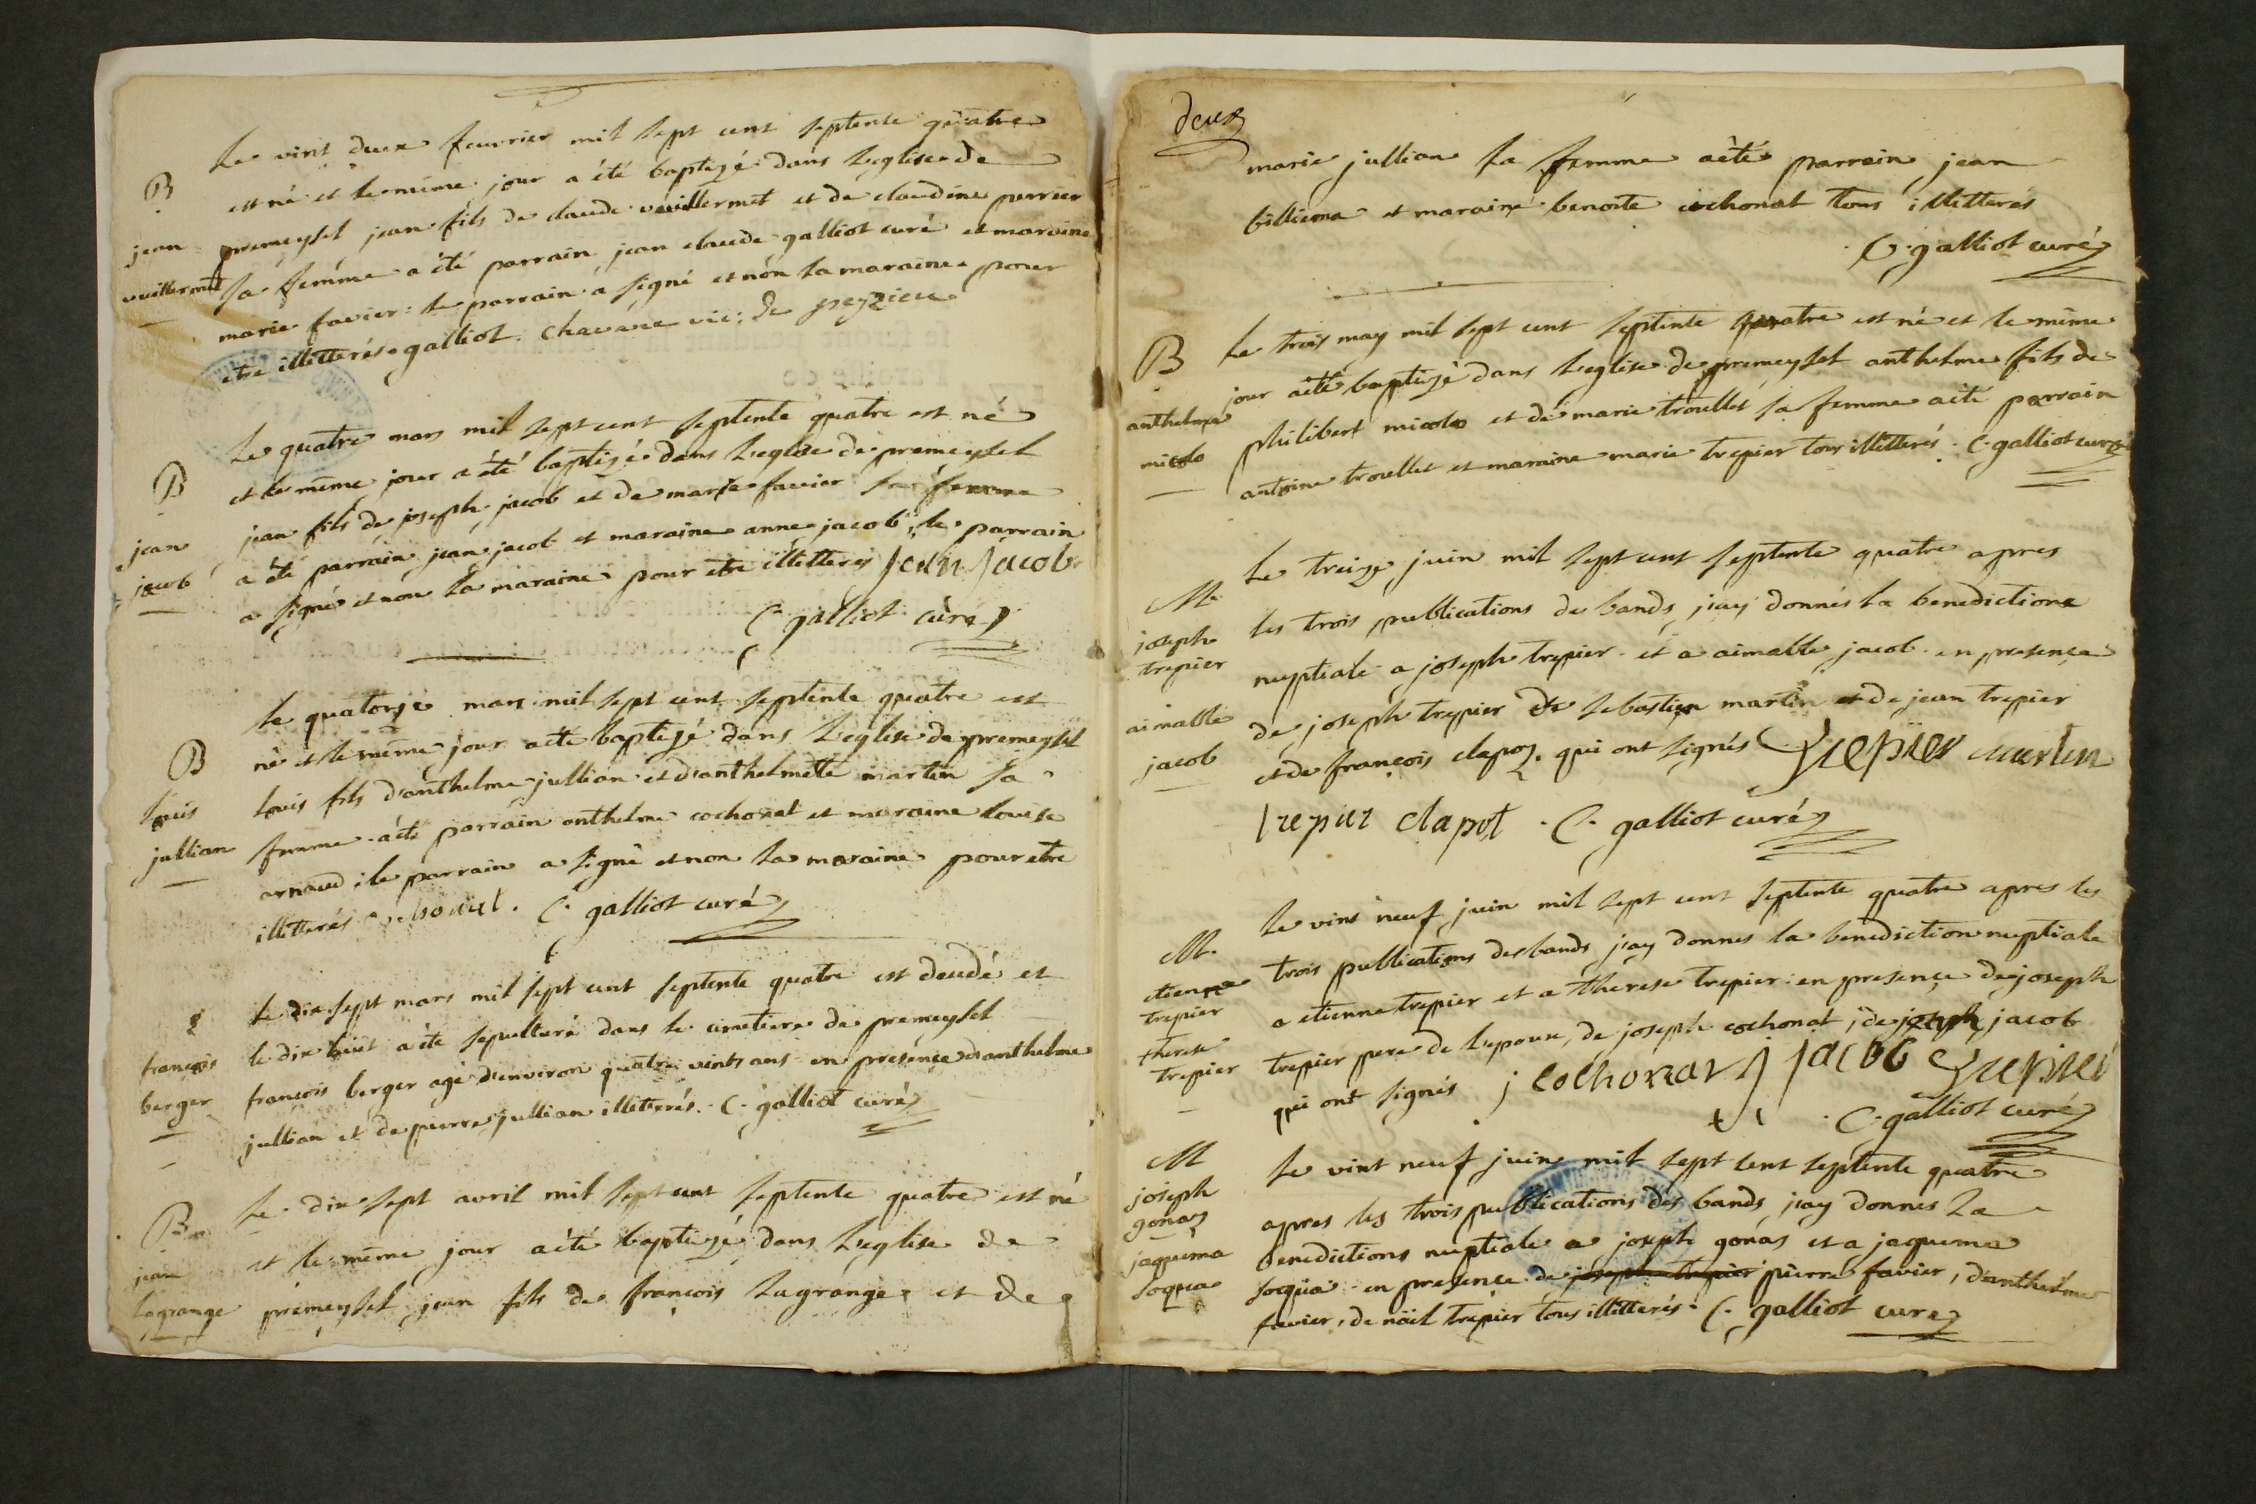 Le vint deux feuvrier mil sept cent septente quatre
B
est né et le même jour a été baptizé dans L'eglise de
jean
premeysel jean fils de claude vuillermet et de claudine perrier
vuillermet
sa femme a été parrain jean claude galliot curé et maraine
marie favier : le parrain a signé et non la maraine pour
etre illitterés galliot . chavane vic: de peyzieu
Le quatre mars mil sept cent septente quatre est né
B
et le même jour a été baptizé dans L'eglise de premeysel
jean
jean fils de joseph jacob et de marie favier sa femme
jacob
a été parrain jean jacob et maraine anne jacob ; le parrain
a signé et non la maraine pour etre illitterés jean jacob
C. galliot curé
le quatorze mars mil sept cent septente quatre est
B
né et le même jour aété baptizé dans L'eglise de premeysel
louis
louis fils d'anthelme jullian et d'anthelmette martin sa
jullian
femme aété parrain anthelme cochonat et maraine louise
arnaud ; le parrain a signé et non la maraine pour etre
illitterés cochonat . C. galliot curé
le dix sept mars mil sept cent septente quatre est deudé et
françois
le dix huit aété sepulturé dans le cimetiere de premeysel
berger
françois berger agé d'environ quatre vints ans en presençe d'anthelme
jullian et de pierre jullian illiterrés . C. galliot curé
B
Le dix sept avril mil sept cent septente quatre est né
jean
et le même jour aété baptizé dans L'eglise de
lagrange
premeysel jean fils de françois Lagrange et de
deux
marie jullian sa femme aété parrain jean
billiema et maraine benoite cochonat tous illitterés
C. galliot curé
Le trois may mil sept cent septente quatre est né et le même
B
jour aété baptizé dans L'eglise de premeysel anthelme fils de
anthelme
micolo
philibert micolo et de marie troullet sa femme aété parrain
antoine troullet et maraine marie trepier tous illitterés . C. galliot curé
Le treize juin mil sept cent septente quatre apres
M.
les trois publications de bands j'ay donnés la benediction
joseph
trepier
nuptiale a joseph trepier et a aimable jacob en presençe
aimable
de joseph trepier de sebastien martin et de jean trepier
jacob
et de françois clapoz . qui ont signés Trepier martin
trepier clapot . C. galliot curé
Le vint neuf juin mil sept cent septente quatre apres les
M.
trois publications des bands j'ay donnés la benediction nuptiale
etienne
trepier
a etienne trepier et a therese trepier en presençe de joseph
therese
trepier
trepier pere de L'epoux, de joseph cochonat , de joseph jacob
qui ont signés j cochonat j jacob Trepier
C. galliot curé
M
Le vint neuf juin mil sept cent septente quatre
joseph
gonaz
apres les trois publications des bands j'ay donnés La
jaquema
benediction nuptiale a joseph gonas et a jaquema
soquia
soquia en presençe de joseph trepier pierre favier , d'anthelme
favier , de noël trepier tous illitterés . C. galliot curé